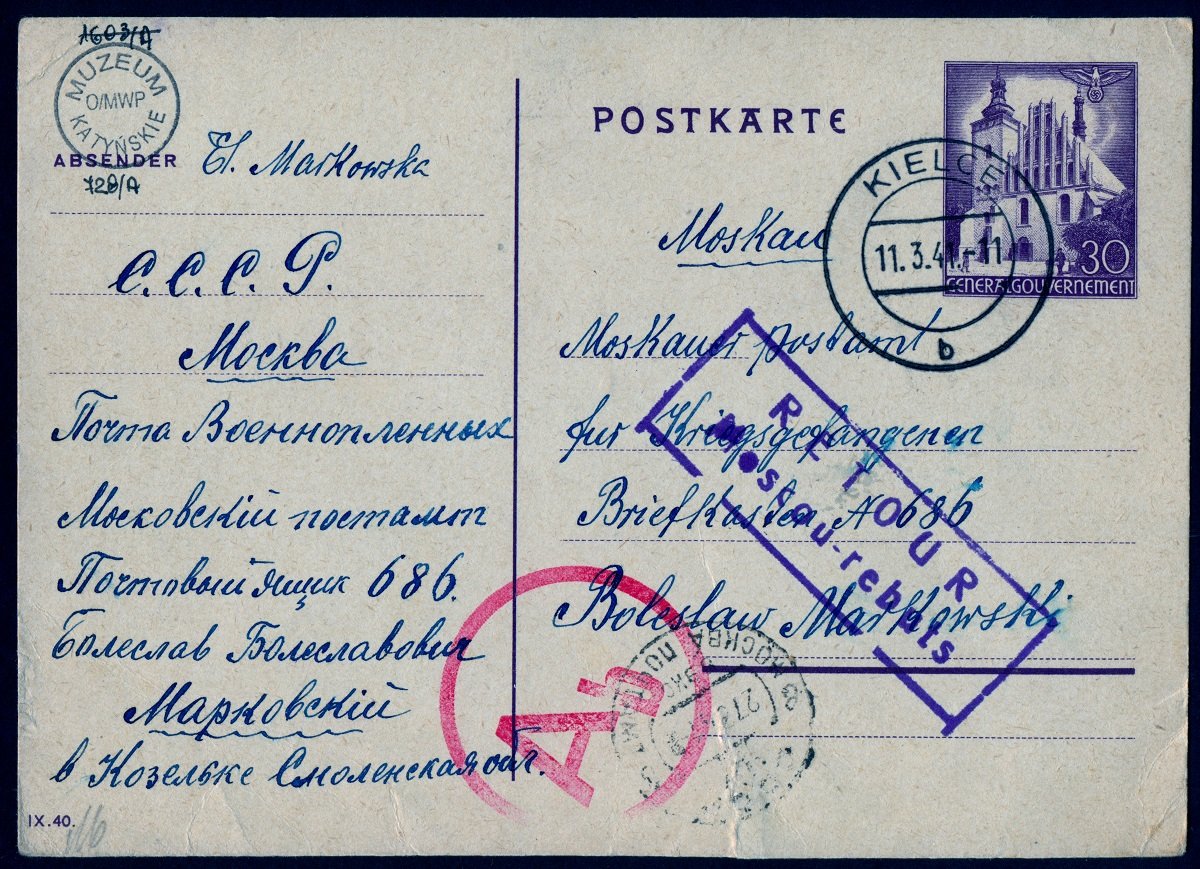 1603/A
MUZEUM
O/MWP
KATYŃSKIE
ABSENDER
Markowska
728/A
С.С.С.Р.
Москва
Почта Военнопленных
Московскій постамт
Почтовый ящик 686.
Болеслав Болеславович
Марковскій
в Козельке Смоленская обл.
IX.40.
POSTKARTE
GENERALGOUVERNEMENT
30
KIELCE
11.3.41.-11
b
Moskau
Moskauer postamt
fur Kriegsgefangenen
Briefkasten N 686
Boleslaw Markowski
RETOUR
Moscou-rebuts
Ab
МОСКВА